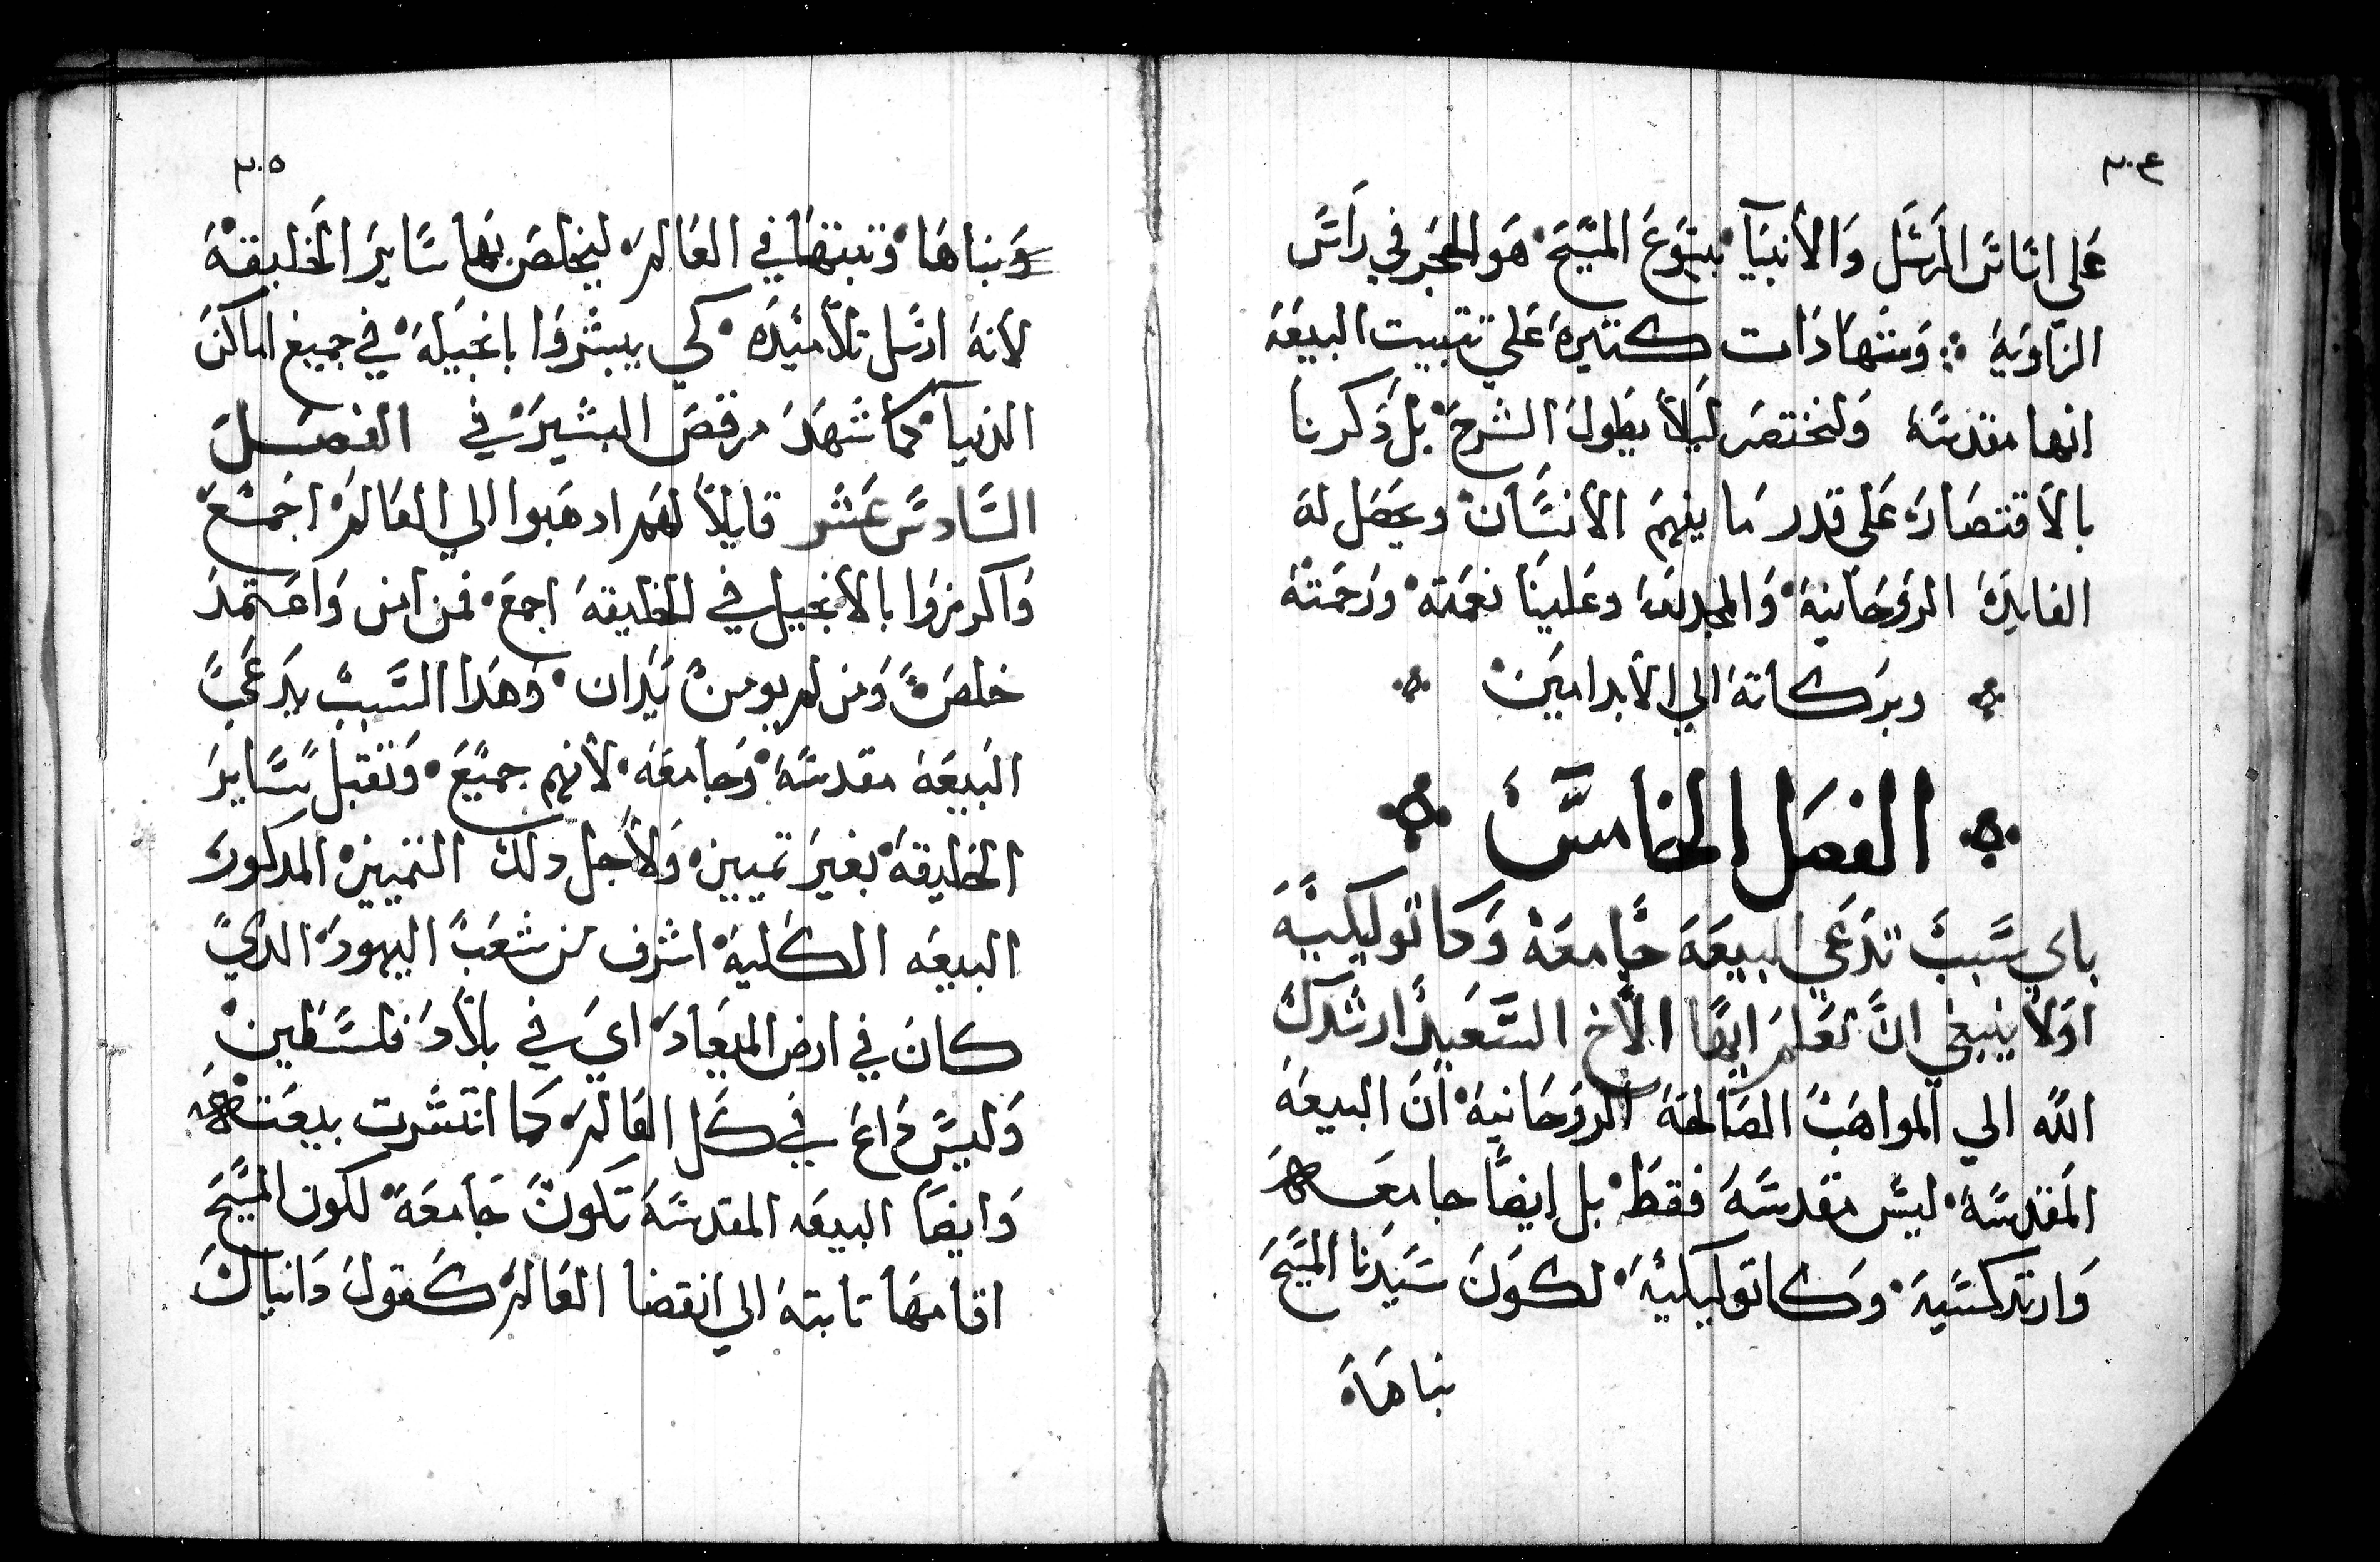 ٢٠٤
على اساس الرسل والأنبيآ بيسوع المسيح هو الحجر في راس
الزاويه وشهادات كتيره على تتبيت البيعه
انها مقدسه ولنختصر ليلا يطول الشرح بل ذكرنا
بالاقتصار على قدر ما يفهم الانسان ويحصل له
الفايده الروحانيه والمجد لله وعلينا نعمته ورحمته
وبركاته الي الابد امين
الفصل الخامس
باي سبب تدعي البيعه جامعه وكاتوليكيه
اولا ينبغي ان تعلم ايها الأخ السعيد ارشدك
الله الي المواهب الصالحه الروحانيه ان البيعه
المقدسه ليس مقدسه فقط بل ايضا جامعه
وارتدكسيه وكاتوليكيه لكون سيدنا المسيح
بناها
٢٠٥
وبناها وتبتها في العالم ليخلص بها ساير الخليقه
لانه ارسل تلاميده كي يبشروا بانجيله في جميع اماكن
الدنيا كما شهد مرقص البشير في الفصل
السادس عشر قايلا لهم ادهبوا الي العالم اجمع
واكرزوا بالانجيل في الخليقه اجمع فمن امن واعتمد
خلص ومن لم يومن يدان وهدا السبب يدعي
البيعه مقدسه وجامعه لأنهم جميع وتقبل ساير
الخليقه بغير تمييز ولأجل دلك التمييز المدكور
البيعه الكليه اشرف من شعب اليهود الدي
كان في ارض الميعاد اي في بلاد فلسطين
وليس داع في كل العالم كما انتشرت بيعته
وايضا البيعه المقدسه تكون جامعه لكون المسيح
اقامها تابته الي انقضا العالم كقول دانيال